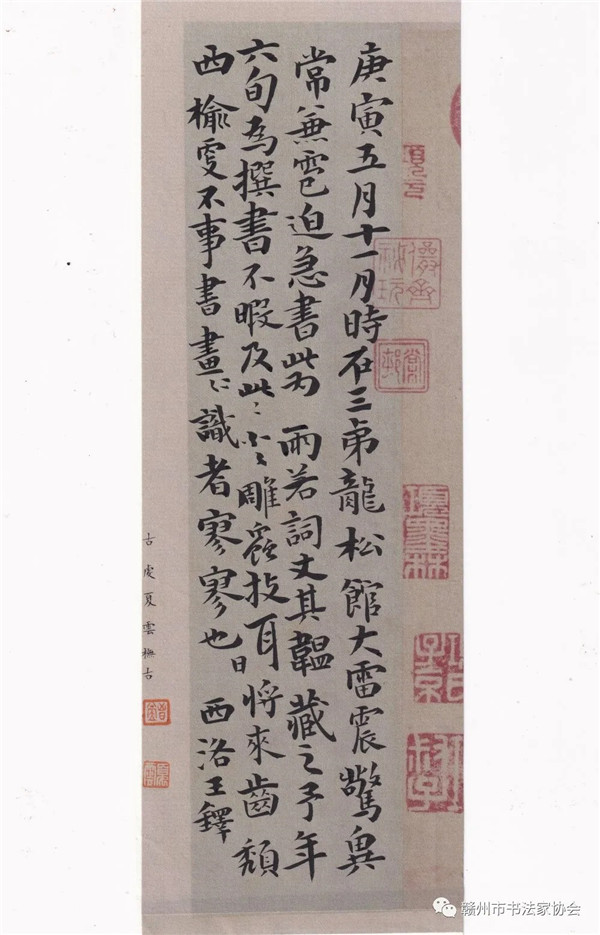 庚寅五月十一月時在三弟龍松館大雷震驚異
常兼雹迫急書此為雨若詞丈其韞藏之予年
六旬為撰書不暇及此ミ小ミ雕蟲技耳日將來齒頹
西榆更不事書畫ミ識者寥寥也 西洛王鐸
古虔夏雲撫古
赣州市书法家协会